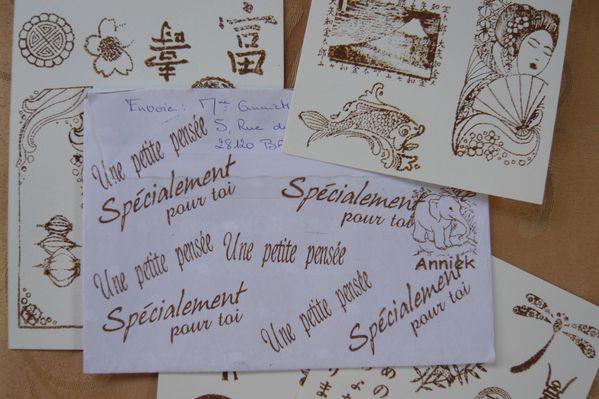 富
Envoie : Mme
5, Rue
28120
Une petite pensée
Spécialement
pour toi
Spécialement
pour toi
Annick
Une petite pensée
Une petite pensée
Spécialement
pour toi
Une petite pensée
Spécialement
pour toi